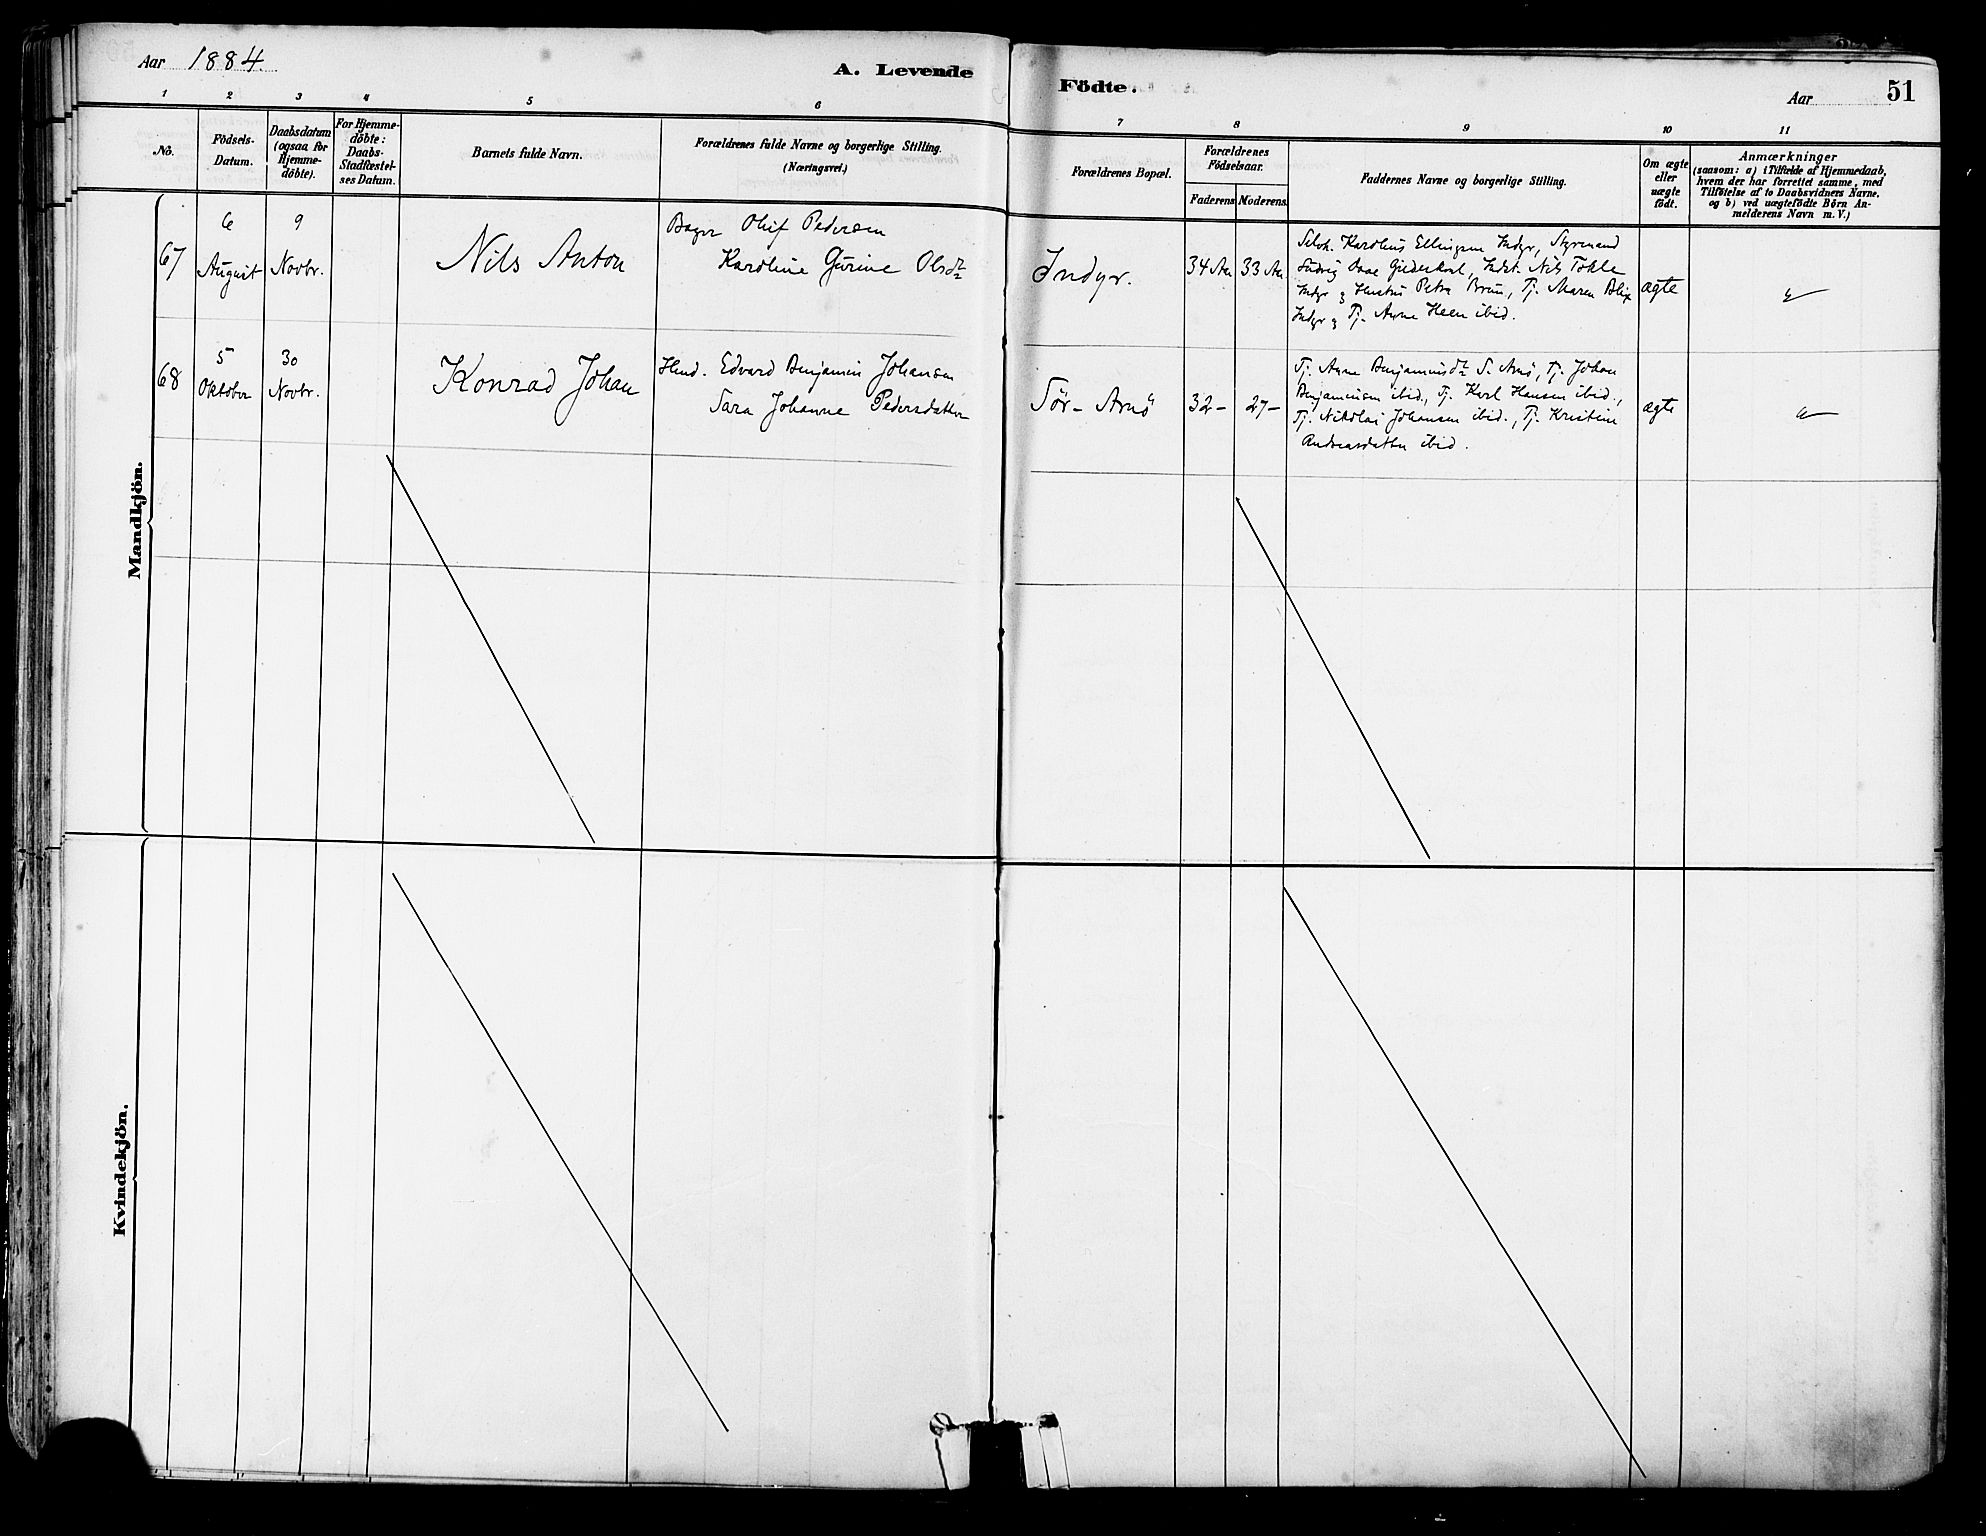 Aar 1884.
A. Levende Födte.
Aar
51
1 2 3 4 5 6 7 8 9 10 11
No.
Födsels-
Datum.
Daabsdatum
(ogsaa for
Hjemme-
döbte).
For Hjemme-
döbte:
Daabs-
Stadfæstel-
ses Datum.
Barnets fulde Navn.
Forældrenes fulde Navne og borgerlige Stilling.
(Næringsvei.)
Forældrenes Bopæl.
Forældrenes
Födselsaar.
Faderens
Moderens.
Faddernes Navne og borgerlige Stilling.
Om ægte
eller
uægte
födt.
Anmærkninger
(saasom: a) i Tilfælde af Hjemmedaab,
hvem der har forrettet samme, med
Tilföielse af to Daabsvidners Navne.
og b) ved uægtefödte Börn An-
melderens Navn m. V.)
Mandkjön.
67
6
August
9
Novbr.
Nils Anton
Bager Oluf Pedersen
Karoline Gurine Olsdr
Indyr.
34 Aar
33 Aar
Selvh. Karolius Ellingsen Indyr, Styrmand
Ludvig Gildeskaal, Nils Tokle
Indyr g Hustru Petra Bruu, Tj. Maren Blix
Indyr g Tj. Anne Heen ibid.
ægte
68
5
Oktober
30
Novbr.
Konrad Johan
Edvard Benjamin Johansen
Sara Johanne Pedersdatter
Sör-Arnö
32-
27-
Tj. Anne Benjaminsdr S. Arnö, Tj. Johan
Benjaminsen ibid., Tj. Karl Hansen ibid.,
Tj. Nikolai Johansen ibid., Tj. Kristine
Andreasdatter ibid.
ægte
Kvindekjön.